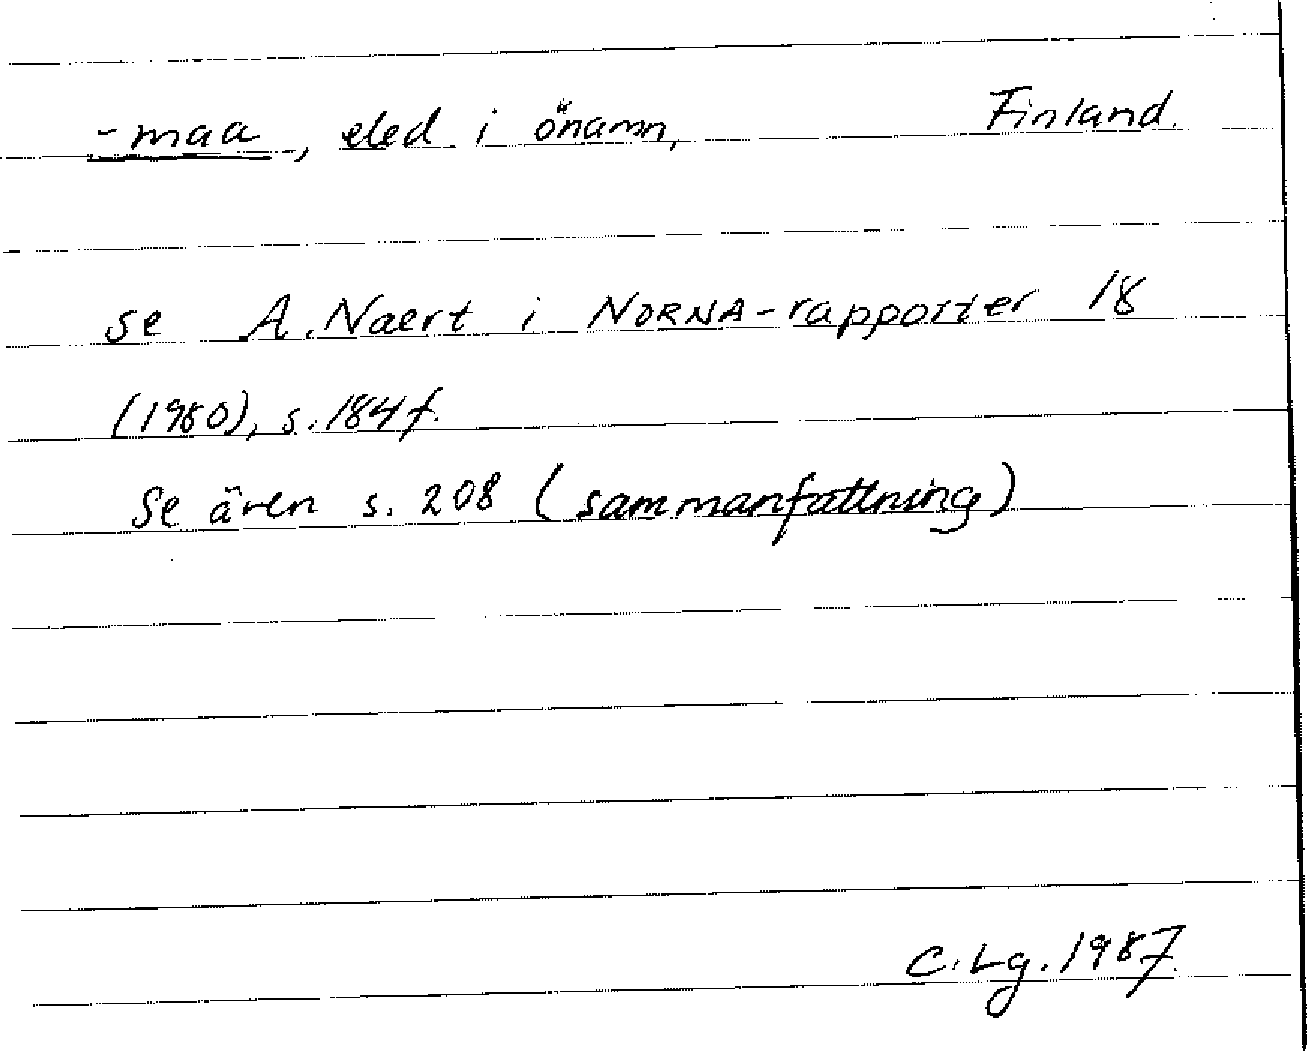 -maa, eled i önamn, Finland.
se A. Naert i NORNA-rapporter 18
(1980), s. 184 f.
Se även s. 208 (sammanfattning)
C. Lg. 1987.